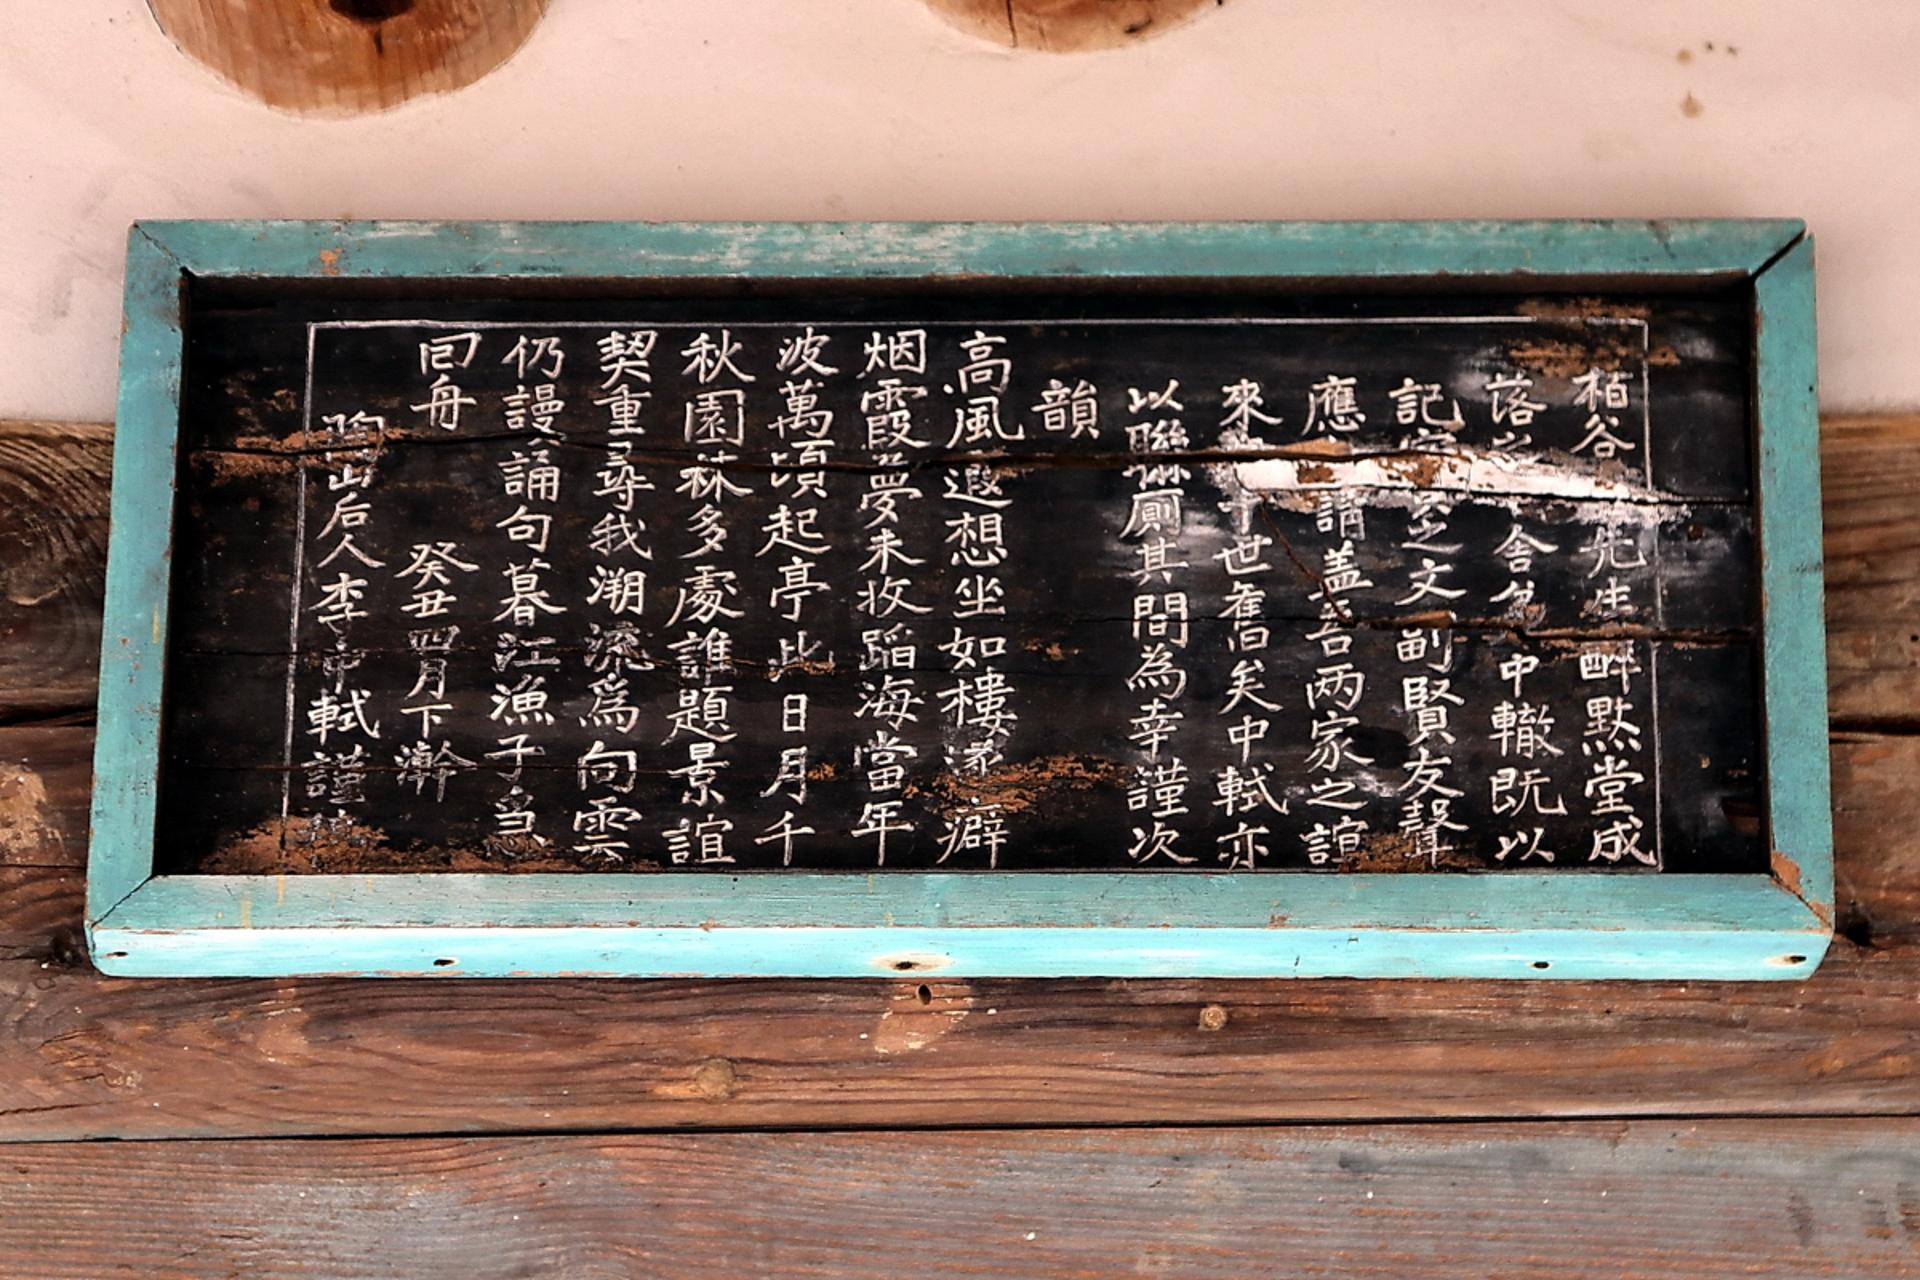 栢谷 先生醉默堂成
落之 舍名中轍既以
記 之文副賢友聲
應 請盖吾兩家之誼
來 十世舊矣中軾亦
以聯 厠其間為幸謹次
韻
高風遐想坐如樓 癖
烟霞夢未收蹈海當年
波萬頃起亭此日月千
秋園林多處誰題景誼
契重尋我溯流爲向雲
仍謾誦句暮江漁子急
回舟
癸丑四月下澣
陶山后人李中軾謹